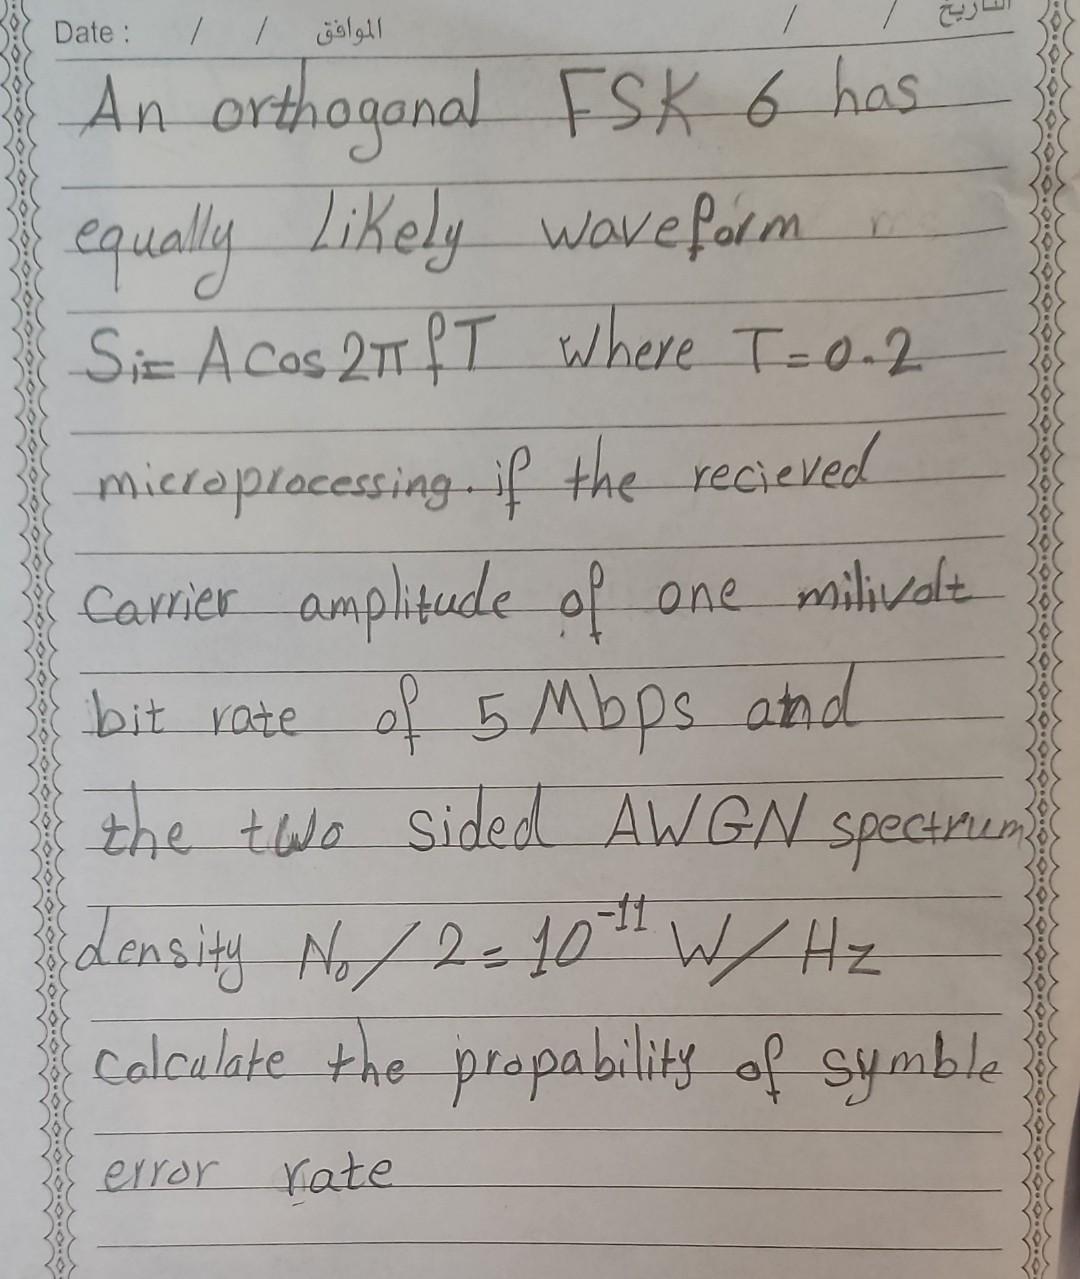 Date : / / الموافق / / التاريخ
An orthogonal FSK 6 has
equally likely waveform
Si= A cos 2π fT where T=0.2
microprocessing. if the recieved
carrier amplitude of one milivolt
bit rate of 5 Mbps and
the two sided AWGN spectrum
density N₀/2=10⁻¹¹ W/Hz
calculate the propability of symble
error rate